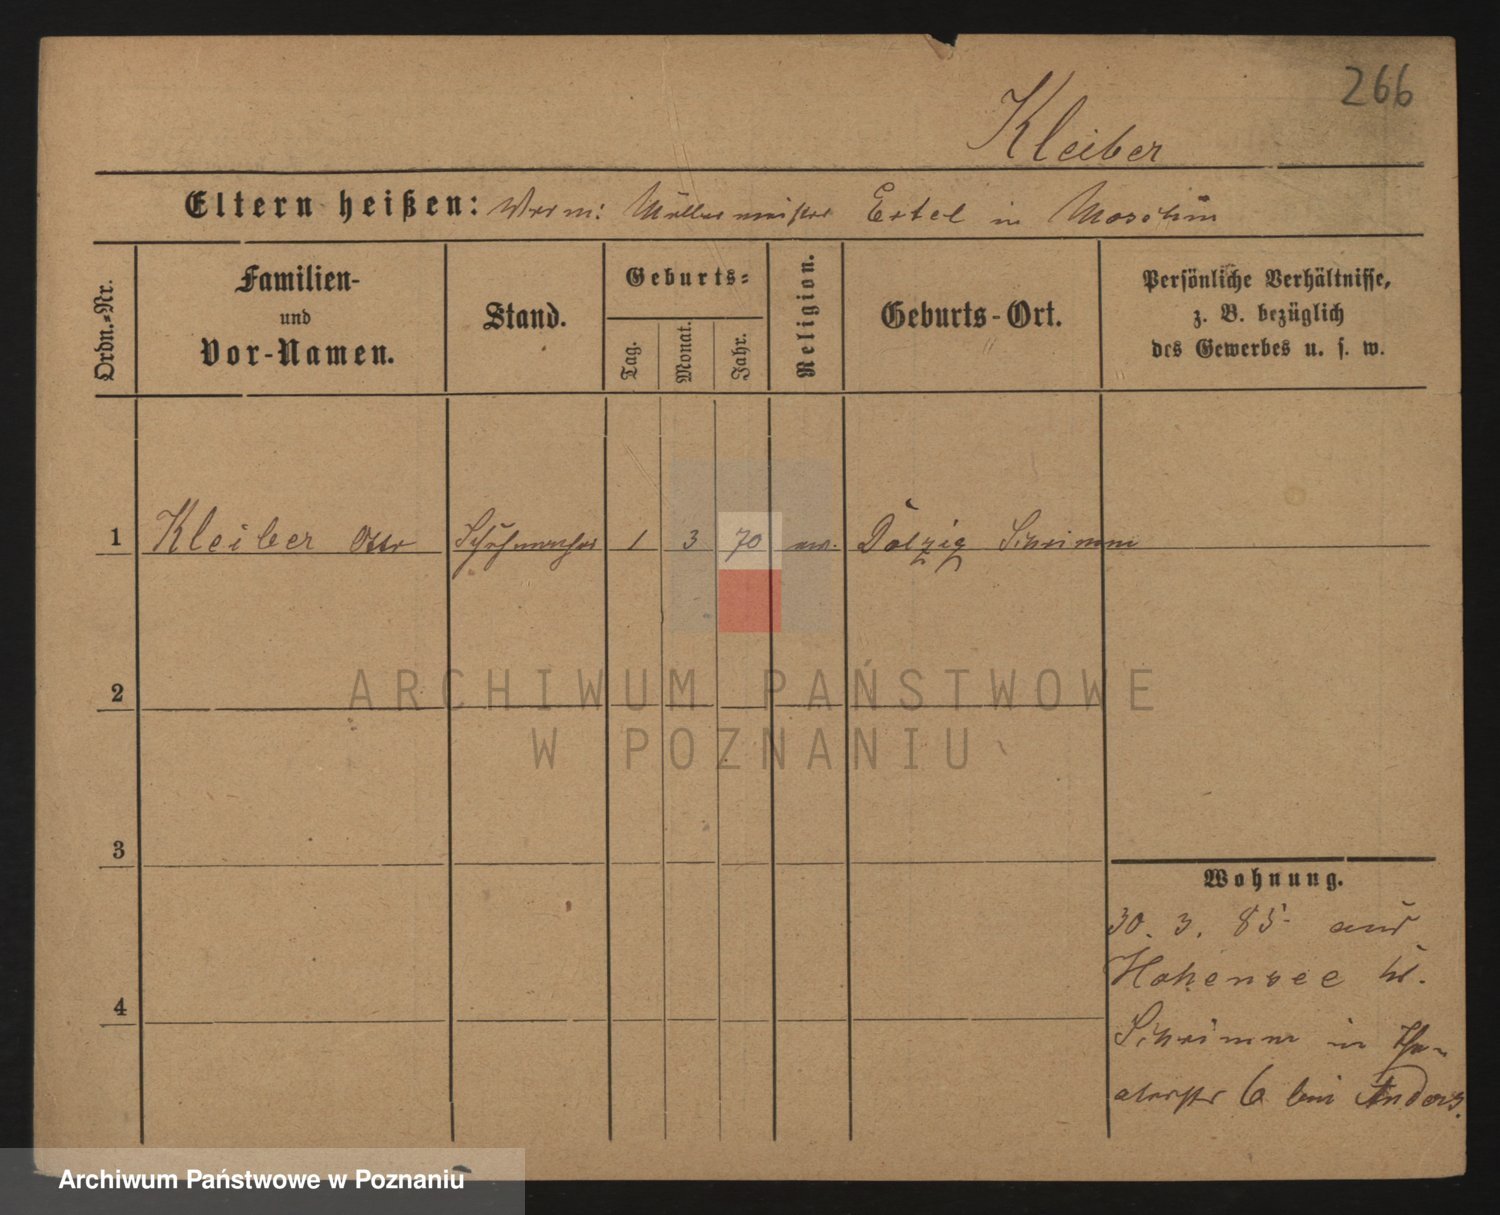 266
Kleiber
Eltern heißen: Vorm: Müllermeister Ertel in Moschin
Ordn.-Nr.
Familien-
und
Vor-Namen.
Stand.
Geburts-
Tag.
Monat.
Jahr.
Religion.
Geburts-Ort.
Persönliche Verhältnisse,
z. B. bezüglich
des Gewerbes u. s. w.
1 Kleiber Otto Schuhmacher 1 3 70 ev. Dolzig Schrimm
2
3
4
Wohnung.
30. 3. 85 aus
Hohensee Kr.
Schrimm in The-
aterstr 6 bei Anders.
ARCHIWUM PAŃSTWOWE
W POZNANIU
Archiwum Państwowe w Poznaniu